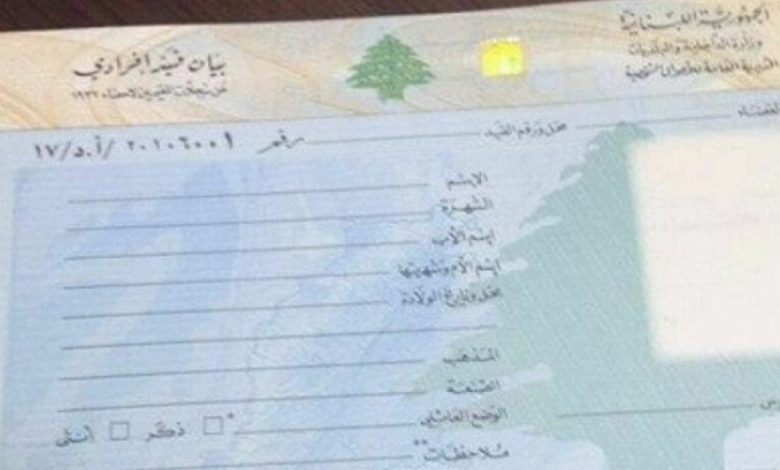 الجمهورية اللبنانية
وزارة الداخلية والبلديات
المديرية العامة للأحوال الشخصية
بيان قيد إفرادي
عن سجلات المقيمين لإحصاء ١٩٣٢
القضاء
محل ورقم القيد
رقم ٢٠١٠٦٠٠١ /أ.د/١٧
الإسم
الشهرة
إسم الأب
إسم الأم وشهرتها
محل وتاريخ الولادة
المذهب
الصنعة
الوضع العائلي
* ذكر أنثى
ملاحظات**